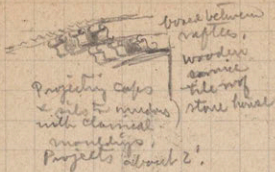 boxed between
rafters.
wooden
cornice
tile roof
stone house
Projecting caps
& sills to windows
with classical
mouldings.
Projects about 2'.